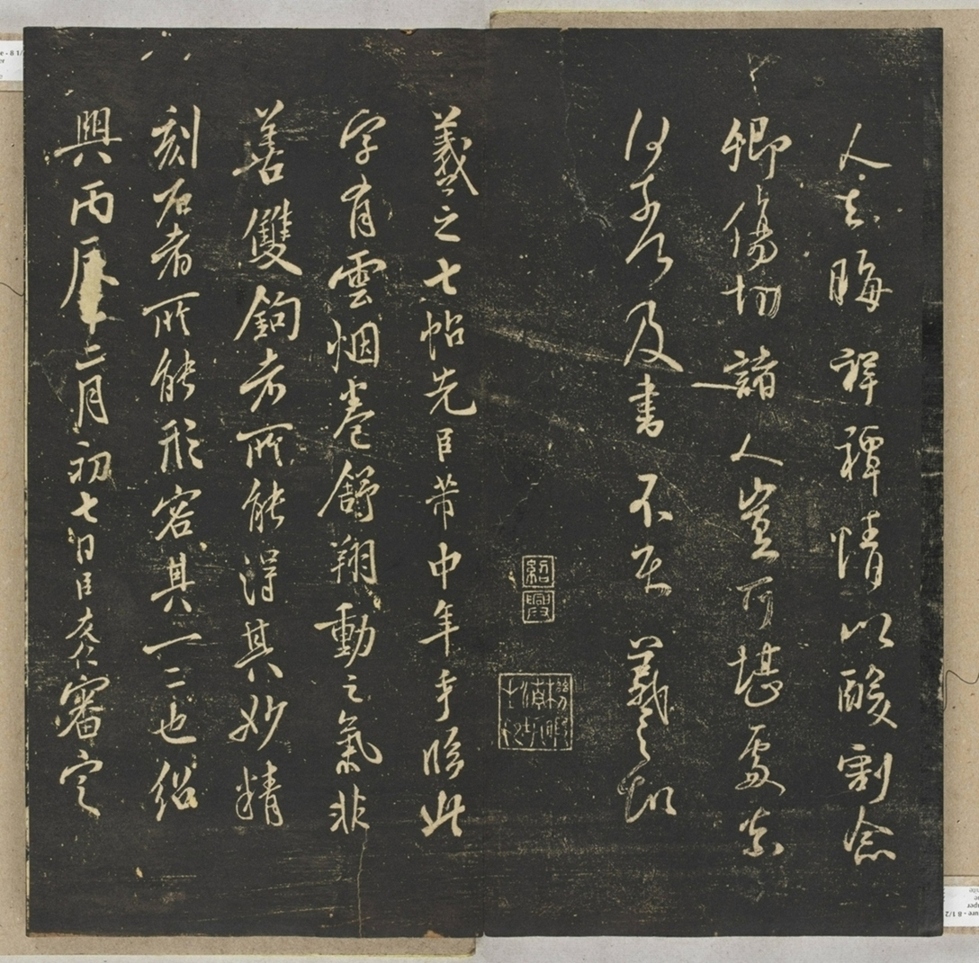 人之晦祥禫情以酸割念
卿傷切諸人豈可堪處奈
何奈何及書不次羲之報
紹興
羲之七帖先臣芾中年手臨此
字有雲烟卷舒翔動之氣非
善雙鉤者所能得其妙精
刻石者所能形容其一二也紹
興丙辰二月初七日臣友仁審定